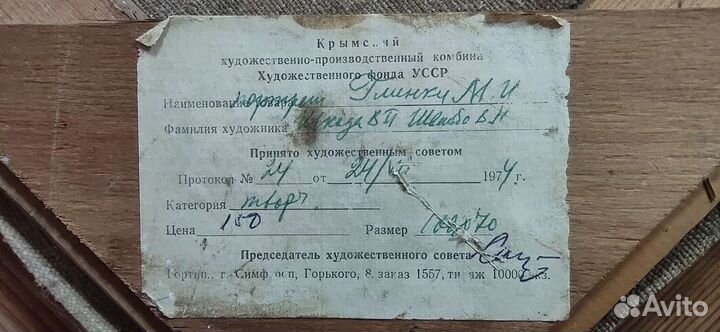 Крымский
художественно-производственный комбина
Художественного фонда УССР
Наименование портрет Глинки М И
Фамилия художника В П В Н
Принято художественным советом
Протокол № 24 от 24/VII 1974 г.
Категория творч.
Цена 150 Размер 100х70
Председатель художественного совета
Гортип., г. Симф оп, Горького, 8. заказ 1557, ти аж 10000 кз.
Avito